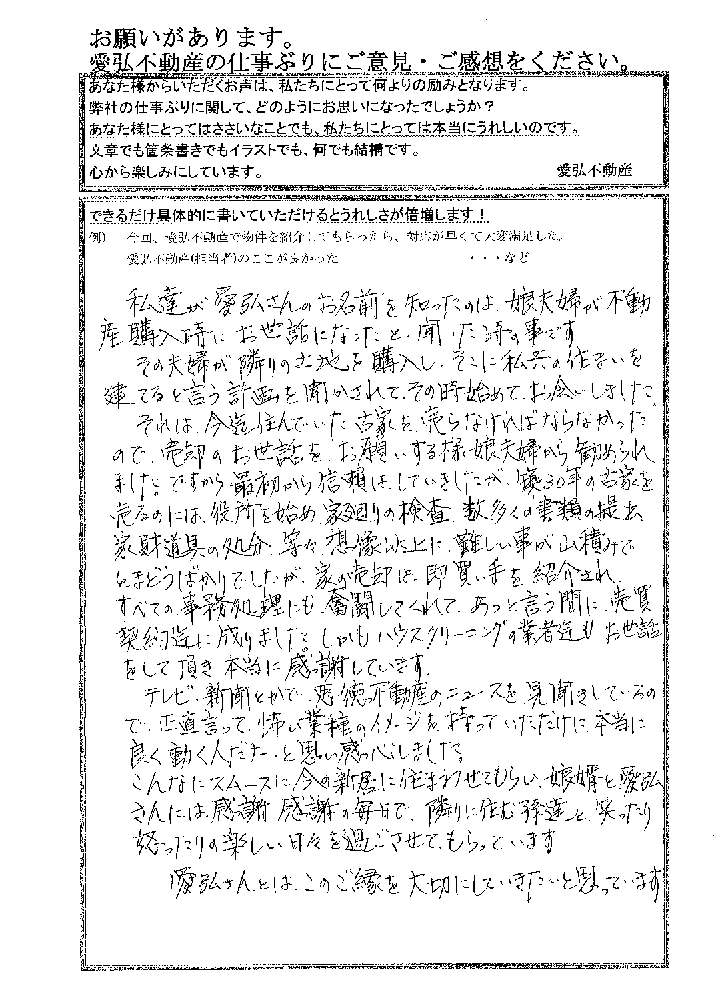 お願いがあります。
愛弘不動産の仕事ぶりにご意見・ご感想をください。
あなた様からいただくお声は、私たちにとって何よりの励みとなります。
弊社の仕事ぶりに関して、どのようにお思いになったでしょうか？
あなた様にとってはささいなことでも、私たちにとっては本当にうれしいのです。
文章でも箇条書きでもイラストでも、何でも結構です。
心から楽しみにしています。 愛弘不動産
できるだけ具体的に書いていただけるとうれしさが倍増します！
例） 今回、愛弘不動産で物件を紹介してもらったら、対応が早くて大変満足した。
愛弘不動産(担当者)のここが良かった ・・・など
私達が愛弘さんのお名前を知ったのは、娘夫婦が不動
産購入時に お世話になったと、聞いた時の事です
その夫婦が隣りの土地を購入し、そこに私共の住まいを
建てると言う計画を聞かされて、その時始めて、お会いしました。
それは、今迄住んでいた古家を、売らなければならなかった
ので、売却のお世話を、お願いする様、娘夫婦から勧められ
ました。ですから最初から信頼はしていましたが、築30年の古家を
売るのには、役所を始め、家廻りの検査、数多くの書類の提出
家財道具の処分、等々、想像以上に、難しい事が山積みで
とまどうばかりでしたが、家の売却は、即買い手を紹介され、
すべての事務処理にも、奮闘してくれて、あっと言う間に、売買
契約迄に成りました。しかもハウスクリーニングの業者迄も お世話
をして頂き 本当に感謝しています。
テレビ・新聞とかで、悪徳不動産のニュースを見聞きしているの
で、正直言って、怖い業種のイメージを持っていただけに、本当に
良く動く人だナーと思い感心しました。
こんなにスムースに今の新居に住まわせてもらい、娘婿と愛弘
さんには、感謝 感謝の毎日で、隣りに住む孫達と、笑ったり
怒ったりの楽しい日々を過ごさせて、もらっています
愛弘さんとは、このご縁を大切にしていきたいと思っています